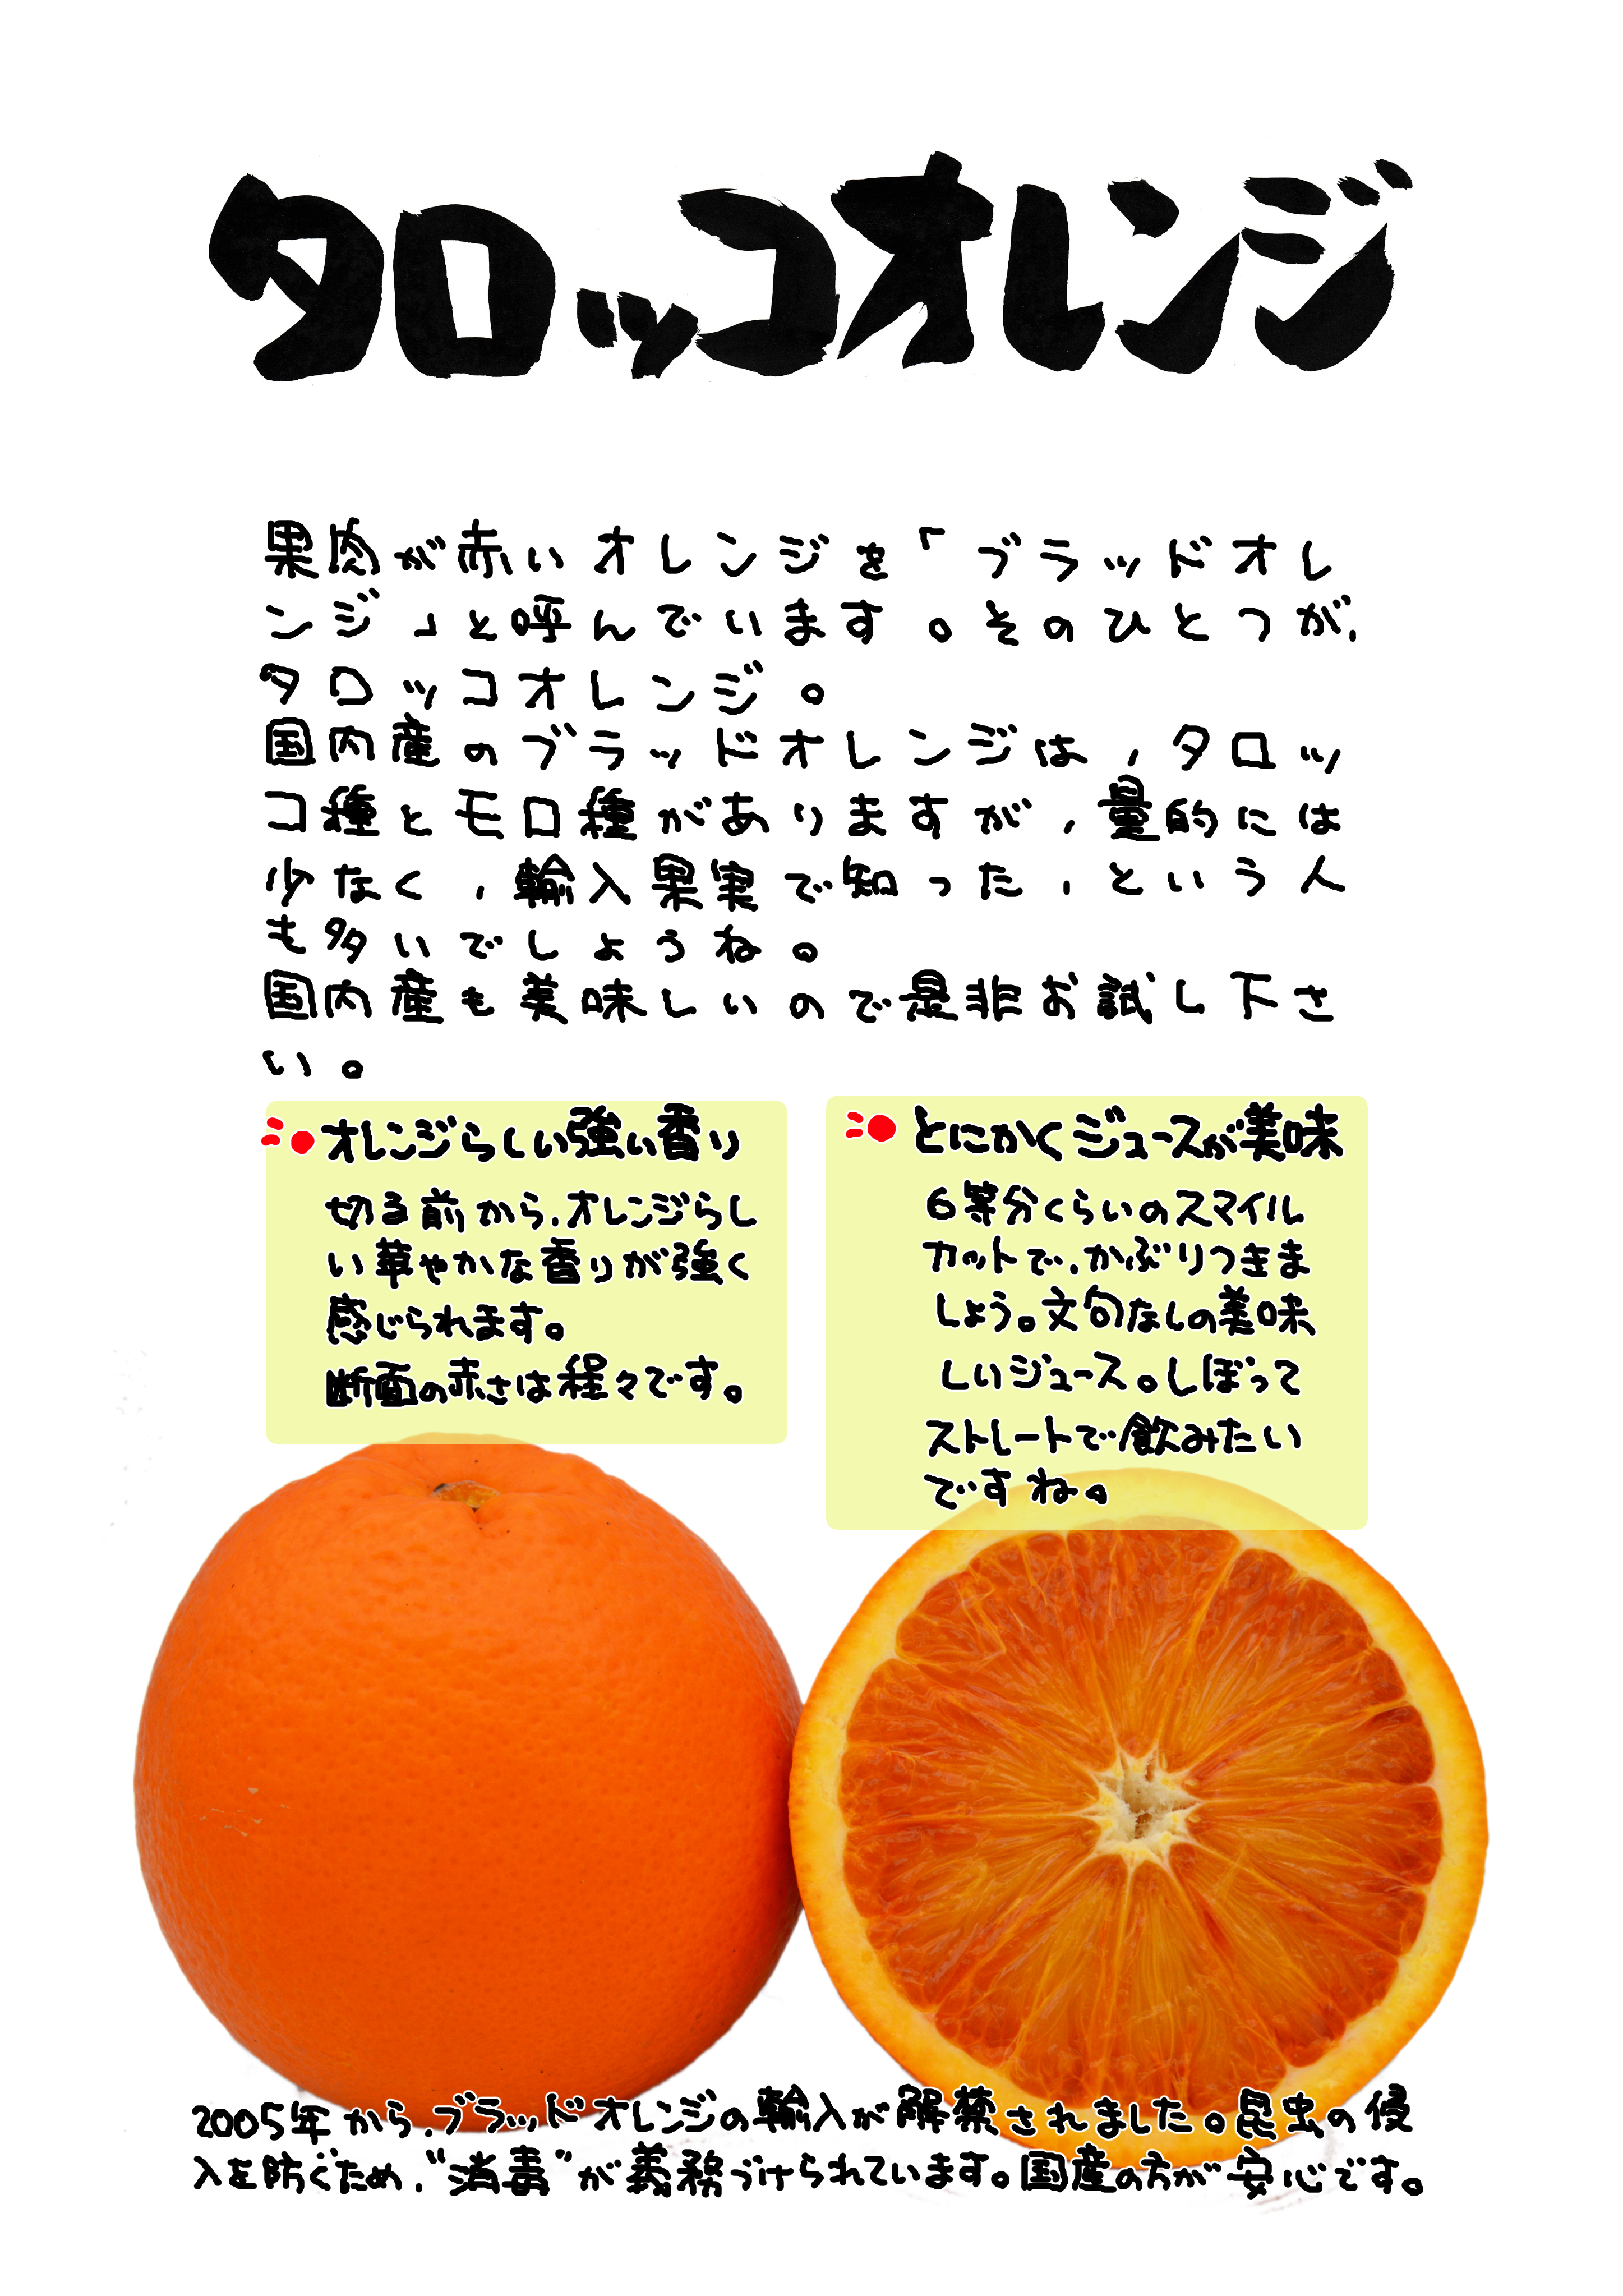 タロッコオレンジ
果肉が赤いオレンジを「ブラッドオレ
ンジ」と呼んでいます。そのひとつが、
タロッコオレンジ。
国内産のブラッドオレンジは、タロッ
コ種とモロ種がありますが、量的には
少なく、輸入果実で知った、という人
も多いでしょうね。
国内産も美味しいので是非お試し下さ
い。
オレンジらしい強い香り
切る前から、オレンジらし
い華やかな香りが強く
感じられます。
断面の赤さは程々です。
とにかくジュースが美味
6等分くらいのスマイル
カットで、かぶりつきま
しょう。文句なしの美味
しいジュース。しぼって
ストレートで飲みたい
ですね。
2005年から、ブラッドオレンジの輸入が解禁されました。昆虫の侵
入を防ぐため、“消毒”が義務づけられています。国産の方が安心です。